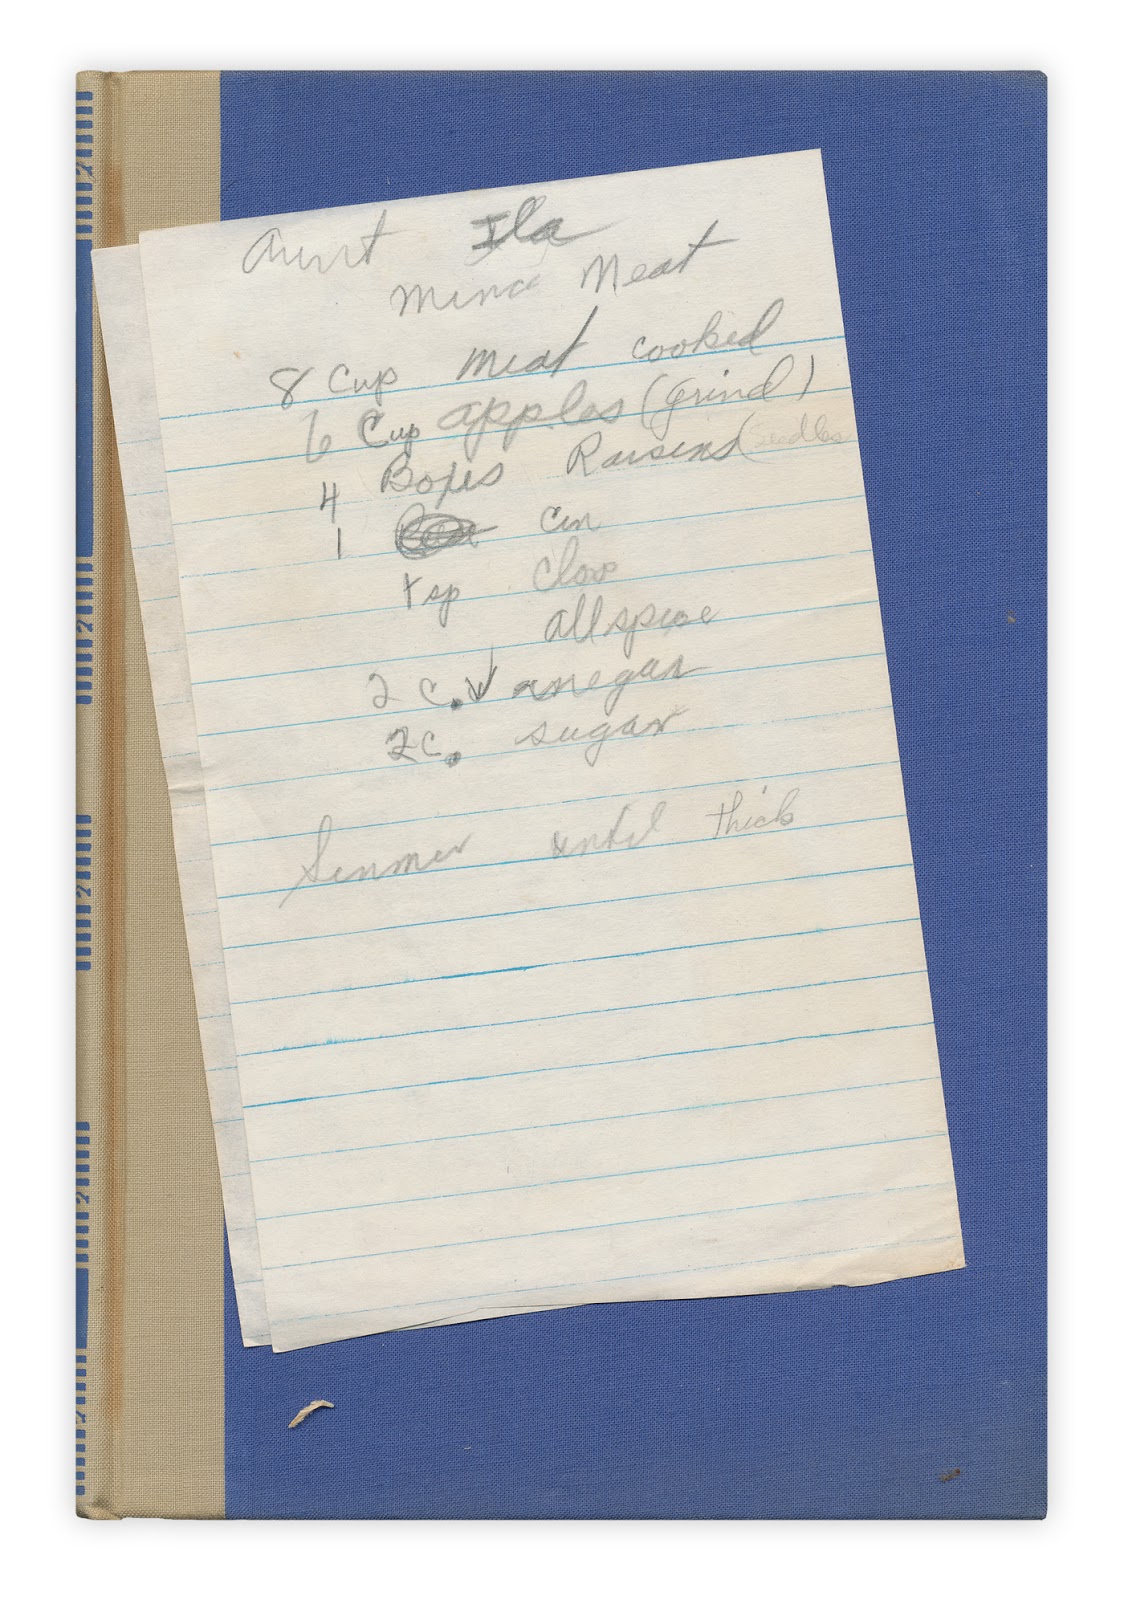 Aunt Ila
Mince Meat
8 Cup Meat cooked
6 Cup apples (Grind)
4 Boxes Raisens (seedles
1 Cin
tsp Clov
allspice
2 C. Vanegar
2 C. sugar
Simmer until thick